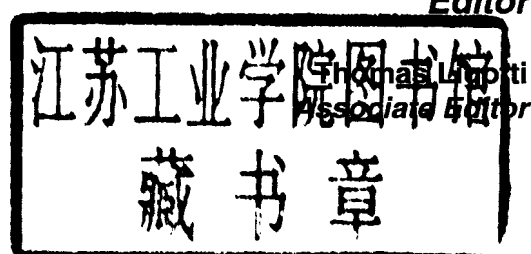 Editor
江苏工业学院图书馆
Thomas Ligotti
Associate Editor
藏书章